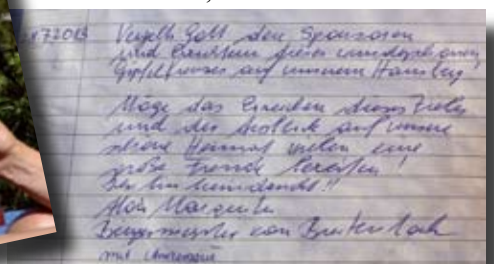 7.2013 Vergelts Gott den Sponsoren
und Erbauern dieses wunderschönen
Gipfelkreuzes auf unserem Hausberg
Möge das Erreichen dieses Zieles
und der Ausblick auf unsere
schöne Heimat vielen eine
große Freude bereiten!
Alois
Bürgermeister von Breitenbach
mit